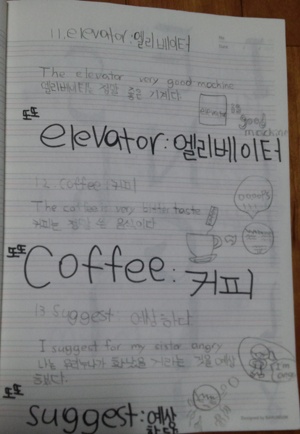 11. elevator:엘리베이터
The elevator very good machine
엘리베이터는 정말 좋은 기계다
is
good
machine
또또
elevator:엘리베이터
12. Coffee:커피
The coffee is very bitter taste
커피는 정말 쓴 음식이다
또또
Coffee:커피
13. Suggest 예상하다
I suggest for my sister angry
나는 우리누나가 화났을 거라는 것을 예상
했다.
또또
suggest:예상
하다